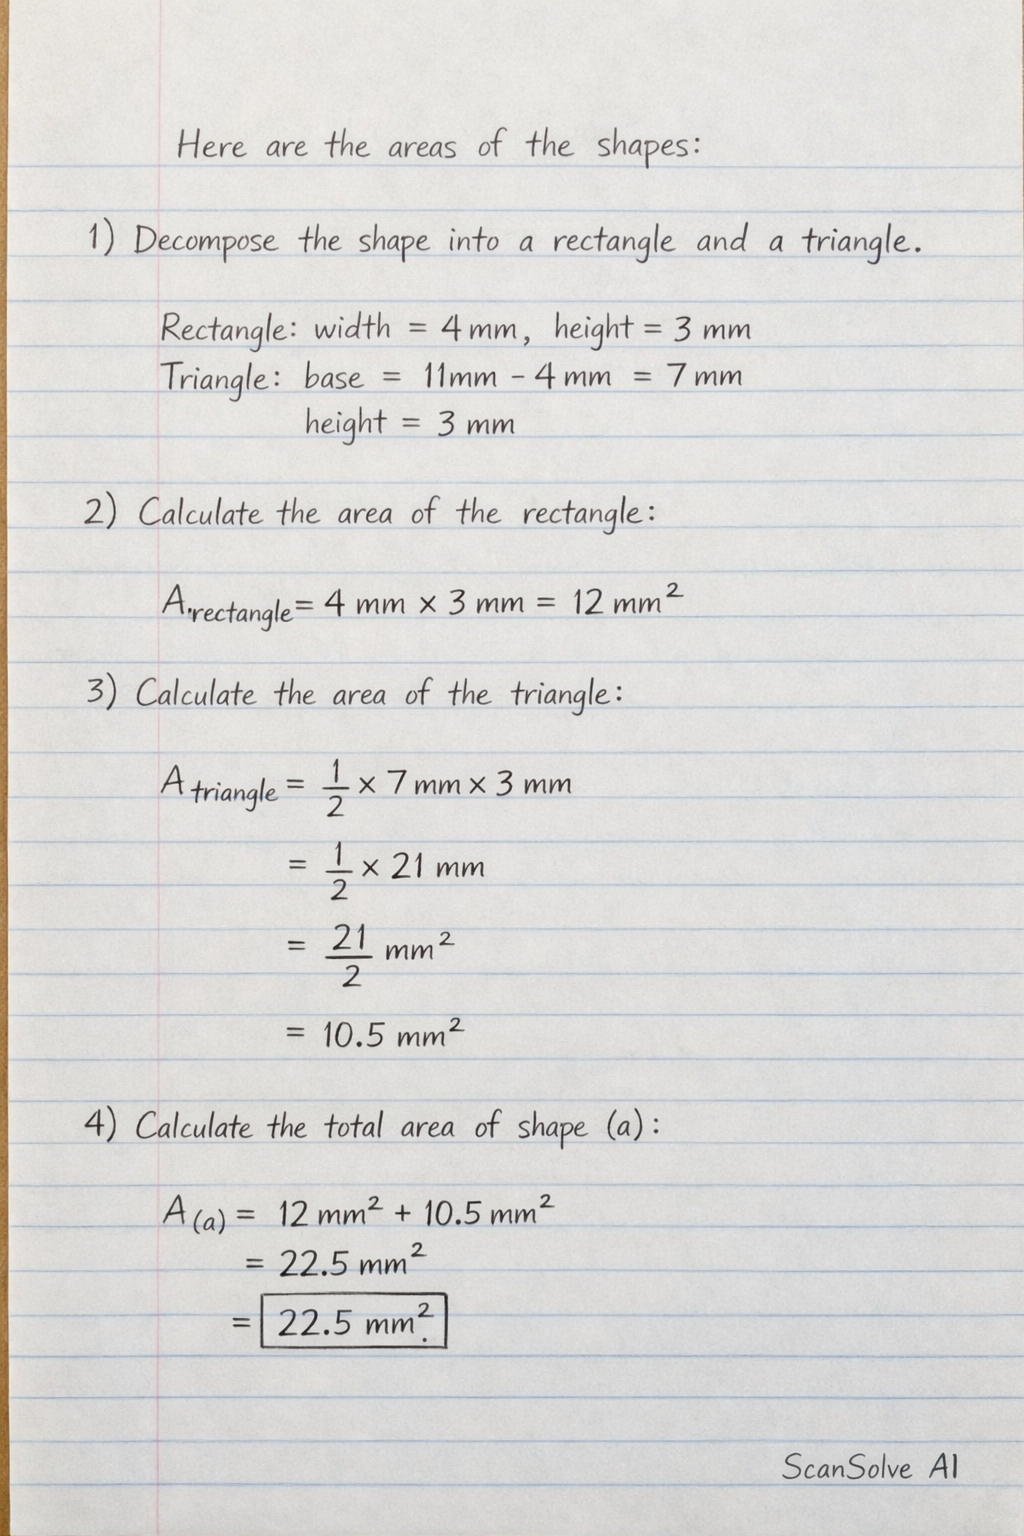 Here are the areas of the shapes:
1) Decompose the shape into a rectangle and a triangle.
Rectangle: width = 4 mm, height = 3 mm
Triangle: base = 11mm - 4 mm = 7 mm
height = 3 mm
2) Calculate the area of the rectangle:
A.rectangle = 4 mm × 3 mm = 12 mm²
3) Calculate the area of the triangle:
A triangle = 1/2 × 7 mm × 3 mm
= 1/2 × 21 mm
= 21/2 mm²
= 10.5 mm²
4) Calculate the total area of shape (a):
A(a) = 12 mm² + 10.5 mm²
= 22.5 mm²
= 22.5 mm².
ScanSolve AI